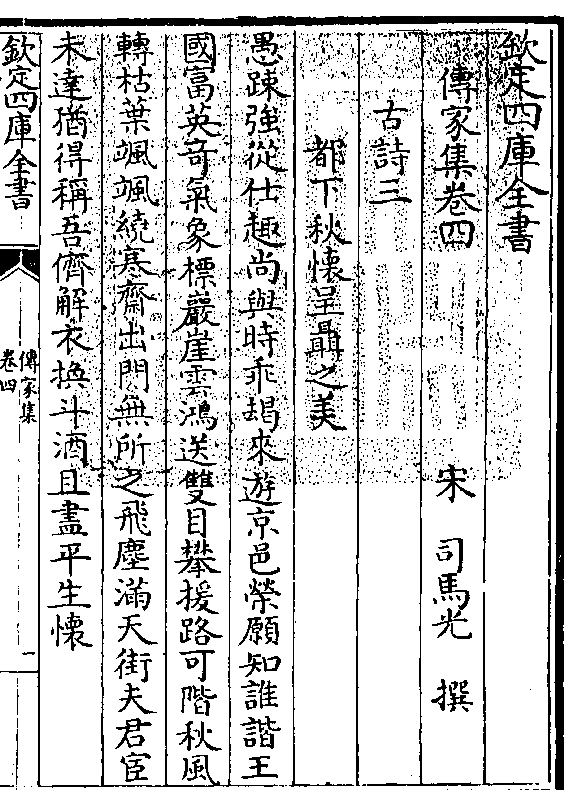 欽定四庫全書
傳家集卷四
宋 司馬光 撰
古詩三
都下秋懷呈聶之美
愚踈強從仕趣尚與時乖朅來遊京邑榮願知誰諧王
國富英奇氣象標嚴崖雲鴻送雙目攀援路可階秋風
轉枯葉颯颯繞寒齋出門無所之飛塵滿天街夫君宦
未達猶得稱吾儕解衣換斗酒且盡平生懷
欽定四庫全書
傳家集
卷四
一